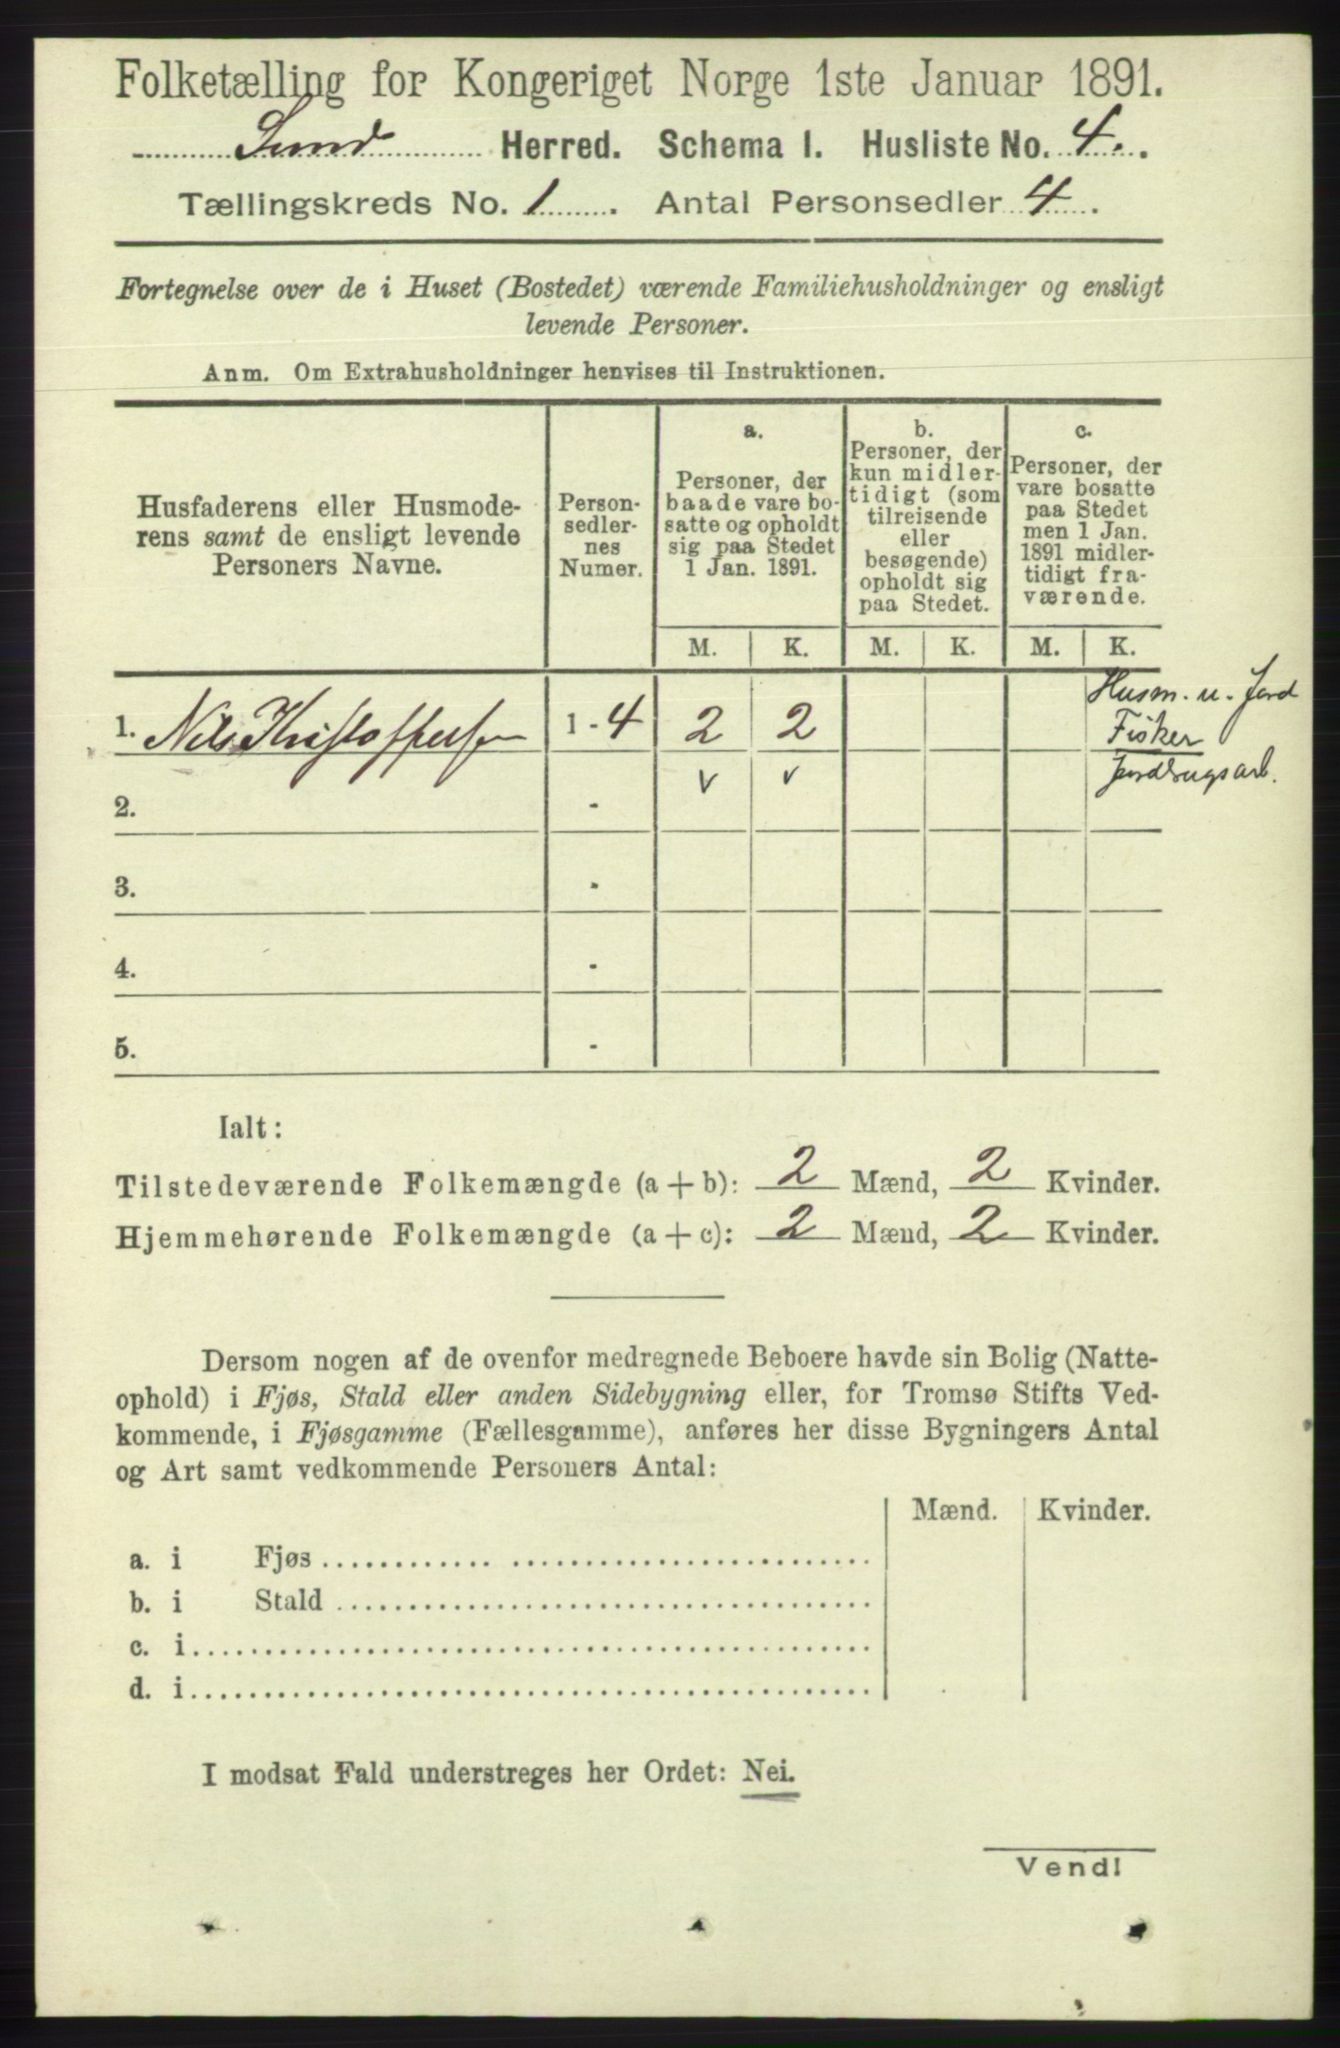 Folketælling for Kongeriget Norge 1ste Januar 1891.
Sund Herred. Schema I. Husliste No. 4.
Tællingskreds No. 1. Antal Personsedler 4.
Fortegnelse over de i Huset (Bostedet) værende Familiehusholdninger og ensligt
levende Personer.
Anm. Om Extrahusholdninger henvises til Instruktionen.
Husfaderens eller Husmode-
rens samt de ensligt levende
Personers Navne.
Person-
sedler-
nes
Numer.
a.
Personer, der
baade vare bo-
satte og opholdt
sig paa Stedet
1 Jan. 1891.
b.
Personer, der
kun midler-
tidigt (som
tilreisende
eller
besøgende)
opholdt sig
paa Stedet.
c.
Personer, der
vare bosatte
paa Stedet
men 1 Jan.
1891 midler-
tidigt fra-
værende.
M. K. M. K. M. K.
1. Nils Kristoffersen 1 - 4 2 2
Husm. u. Jord
Fisker
Jordbrugsarb.
v v
2. -
3. -
4. -
5. -
Ialt:
Tilstedeværende Folkemængde (a + b): 2 Mænd, 2 Kvinder.
Hjemmehørende Folkemængde (a + c): 2 Mænd, 2 Kvinder.
Dersom nogen af de ovenfor medregnede Beboere havde sin Bolig (Natte-
ophold) i Fjøs, Stald eller anden Sidebygning eller, for Tromsø Stifts Ved-
kommende, i Fjøsgamme (Fællesgamme), anføres her disse Bygningers Antal
og Art samt vedkommende Personers Antal:
Mænd. Kvinder.
a. i Fjøs
b. i Stald
c. i
d. i
I modsat Fald understreges her Ordet: Nei.
Vend!